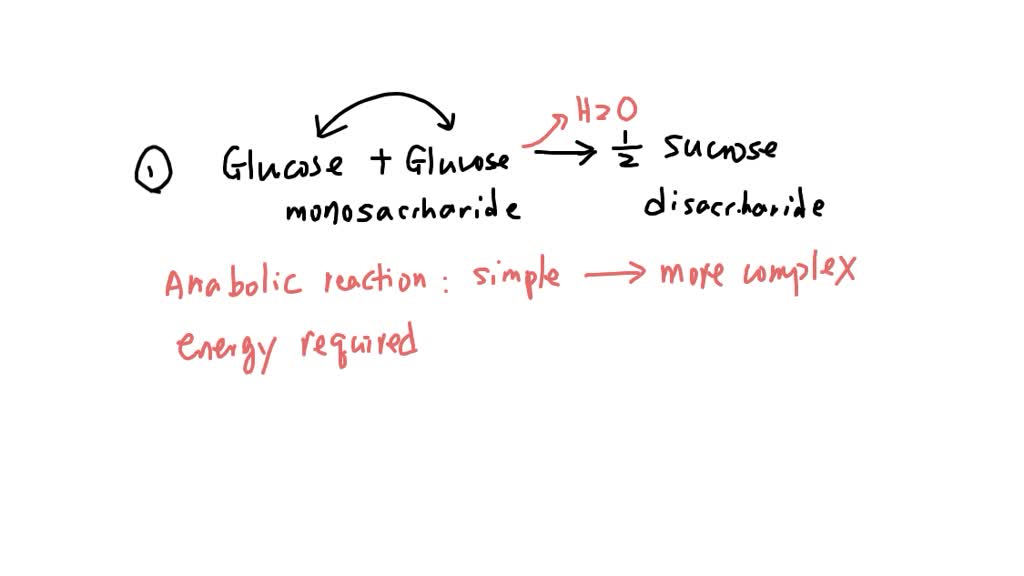 H2O
① Glucose + Glucose → 1/2 sucrose
monosaccharide disaccharide
Anabolic reaction : simple → more complex
energy required